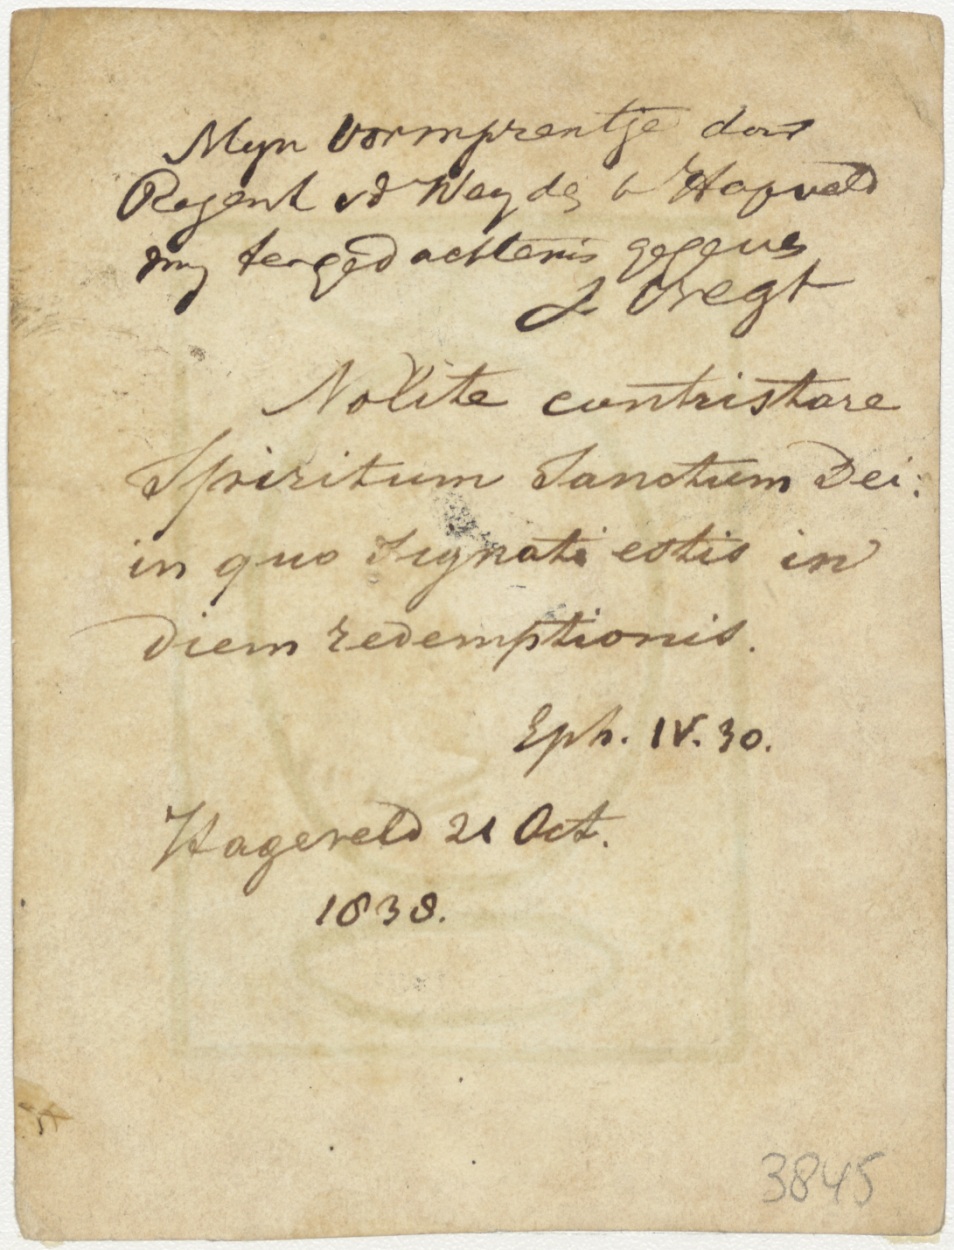 Myn Vormprentje door
Regent vd Weyde, te Hageveld
my ter gedachtenis gegeven
J. Vregt
Nolite contristare
Spiritum Sanctum Dei:
in quo signati estis in
diem redemptionis.
Eph. IV. 30.
Hageveld 21 Oct.
1838.
3845